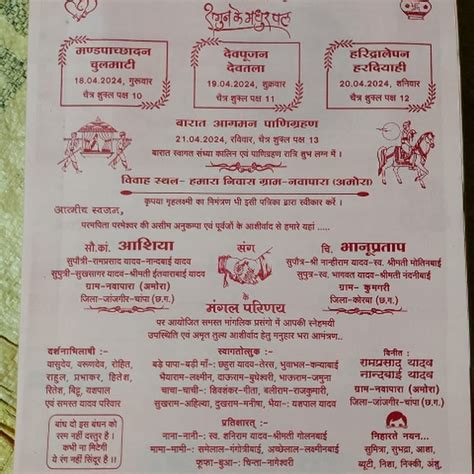 शगुन के मधुर पल
मण्डपाच्छादन
चुलमाटी
18.04.2024, गुरूवार
चैत्र शुक्ल पक्ष 10
देवपूजन
देवतला
19.04.2024, शुक्रवार
चैत्र शुक्ल पक्ष 11
हरिद्रालेपन
हरदियाही
20.04.2024, शनिवार
चैत्र शुक्ल पक्ष 12
बारात आगमन पाणिग्रहण
21.04.2024, रविवार, चैत्र शुक्ल पक्ष 13
बारात स्वागत संध्या कालिन एवं पाणिग्रहण रात्रि शुभ लग्न में ।
विवाह स्थल- हमारा निवास ग्राम-नवापारा (अमोरा)
कृपया गृहलक्ष्मी का निमंत्रण भी इसी पत्रिका द्वारा स्वीकार करें ।
आत्मीय स्वजन,
परमपिता परमेश्वर की असीम अनुकम्पा एवं पूर्वजों के आशीर्वाद से हमारे यहां .....
सौ.कां. आशिया
सुपौत्री-रामप्रसाद यादव-नान्दबाई यादव
सुपुत्री-सुखसागर यादव-श्रीमती इतवाराबाई यादव
ग्राम-नवापारा (अमोरा)
जिला-जांजगीर-चांपा (छ.ग.)
संग
चि. भानूप्रताप
सुपौत्र-श्री नान्हीराम यादव-स्व. श्रीमती मोतिनबाई
सुपुत्र-स्व. भागवत यादव-श्रीमती नंदनीबाई
ग्राम- कुमगरी
जिला-कोरबा (छ.ग.)
के
मंगल परिणय
पर आयोजित समस्त मांगलिक प्रसंगो में आपकी स्नेहमयी
उपस्थिति एवं अमृत तुल्य आशीर्वाद हेतु मनुहार भरा आमंत्रण..
दर्शनाभिलाषी :-
वासुदेव, वरूणदेव, रोहित,
राहुल, प्रभाकर, हितेश,
रितेश, बिट्टू, यशपाल
एवं समस्त यादव परिवार
स्वागतोत्सुक :-
बड़े पापा-बड़ी माँ:-छहुरा यादव-तेरस, भुवाभल-कन्याबाई
भैयाराम-लक्ष्मीन, दाऊराम-बुधेश्वरी, भाऊराम-जमुना
चाचा-चाची:- शिवशंकर-गीता, बलीराम-राजकुमारी,
सुखराम-अहिल्या, दुखराम-मनीषा, भैया:- यशपाल यादव
विनीत :
रामप्रसाद यादव
नान्दबाई यादव
ग्राम-नवापारा (अमोरा)
जिला-जांजगीर-चांपा (छ.ग.)
बांध दो इस बंधन को
रस्म नहीं दस्तूर है ।
कभी ना मिटेगी
ये रंग नहीं सिंदूर है ।।
प्रतिक्षारत् :-
नाना-नानी:- स्व. शनिराम यादव-श्रीमती गोलनबाई
मामा-मामी:- समेलाल-गंगोत्रीबाई, अच्छेलाल-लक्ष्मीनबाई
फूफा-बुआ:- चिन्ता-नागेश्वरी
निहारते नयन...
सुमित्रा, सुभद्रा, आशा,
ब्यूटी, निशा, निक्की, अंशु,